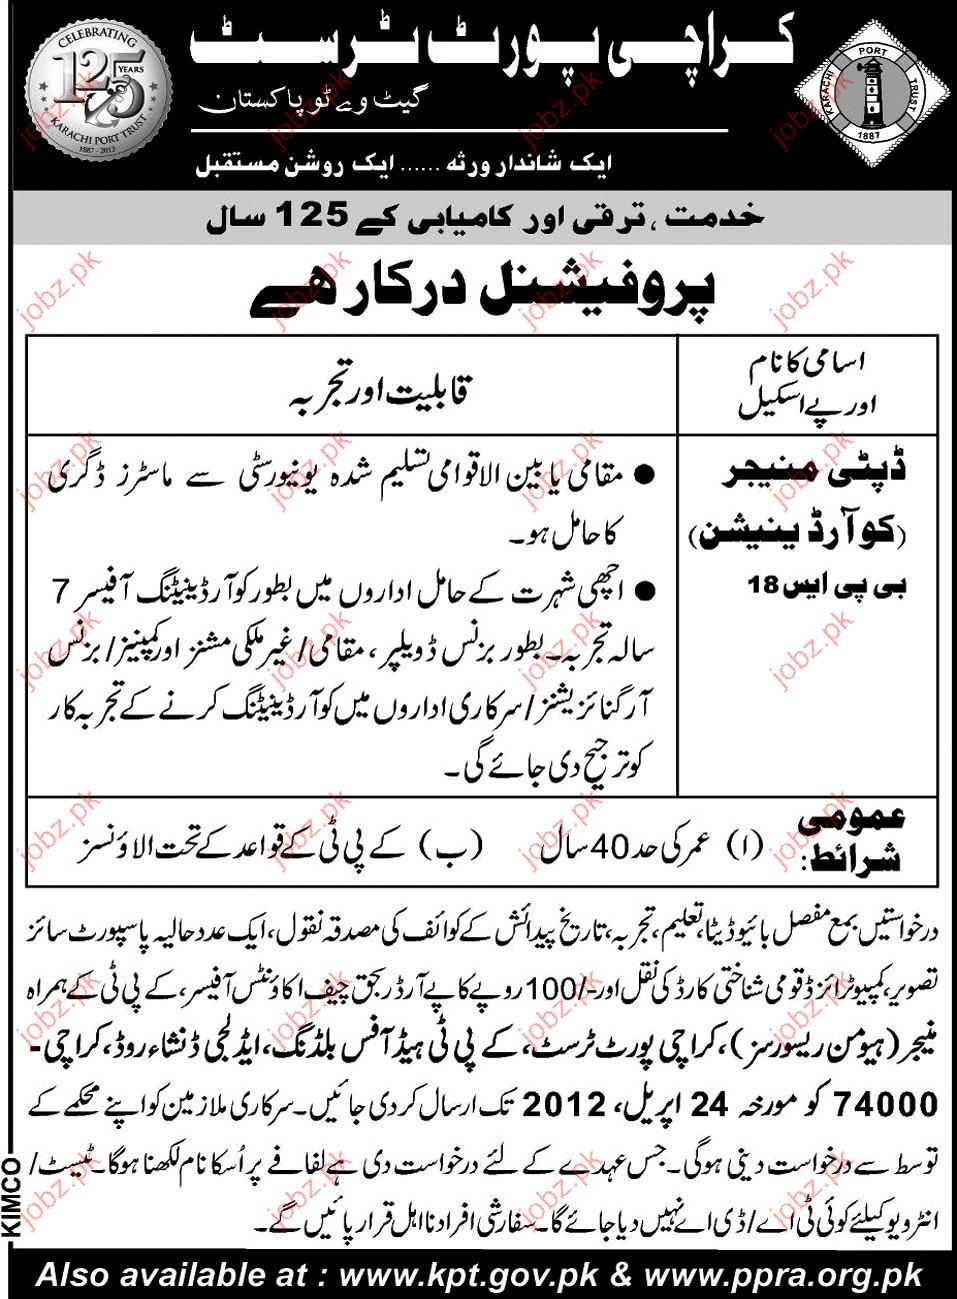 CELEBRATING
125
YEARS
KARACHI PORT TRUST
1887 - 2012
کراچی پورٹ ٹرسٹ
گیٹ وے ٹو پاکستان
ایک شاندار ورثہ ...... ایک روشن مستقبل
KARACHI PORT TRUST
1887
خدمت ، ترقی اور کامیابی کے 125 سال
پروفیشنل درکار ھے
اسامی کا نام
اور پے اسکیل
قابلیت اور تجربہ
ڈپٹی منیجر
(کوآرڈینیشن)
بی پی ایس 18
● مقامی یا بین الاقوامی تسلیم شدہ یونیورسٹی سے ماسٹرز ڈگری
کا حامل ہو۔
● اچھی شہرت کے حامل اداروں میں بطور کوآرڈینیٹنگ آفیسر 7
سالہ تجربہ۔ بطور بزنس ڈویلپر، مقامی/غیر ملکی مشنز اور کمپنیز/بزنس
آرگنائزیشنز/سرکاری اداروں میں کوآرڈینیٹنگ کرنے کے تجربہ کار
کو ترجیح دی جائے گی۔
عمومی
شرائط:
(ا) عمر کی حد 40 سال (ب) کے پی ٹی کے قواعد کے تحت الاؤنسز
درخواستیں بمع مفصل بائیوڈیٹا، تعلیم، تجربہ، تاریخ پیدائش کے کوائف کی مصدقہ نقول، ایک عدد حالیہ پاسپورٹ سائز
تصویر، کمپیوٹرائزڈ قومی شناختی کارڈ کی نقل اور -/100 روپے کا پے آرڈر بحق چیف اکاؤنٹس آفیسر، کے پی ٹی کے ہمراہ
منیجر (ہیومن ریسورسز)، کراچی پورٹ ٹرسٹ، کے پی ٹی ہیڈ آفس بلڈنگ، ایڈلجی ڈنشاء روڈ، کراچی-
74000 کو مورخہ 24 اپریل، 2012 تک ارسال کر دی جائیں۔ سرکاری ملازمین کو اپنے محکمے کے
توسط سے درخواست دینی ہوگی۔ جس عہدے کے لئے درخواست دی ہے لفافے پر اُسکا نام لکھنا ہوگا۔ ٹیسٹ/
انٹرویو کیلئے کوئی ٹی اے/ڈی اے نہیں دیا جائے گا۔ سفارشی افراد نااہل قرار پائیں گے۔
KIMCO
Also available at : www.kpt.gov.pk & www.ppra.org.pk
jobz.pk